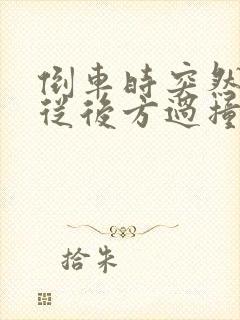 倒車時突然
從後方過撞
拾朱